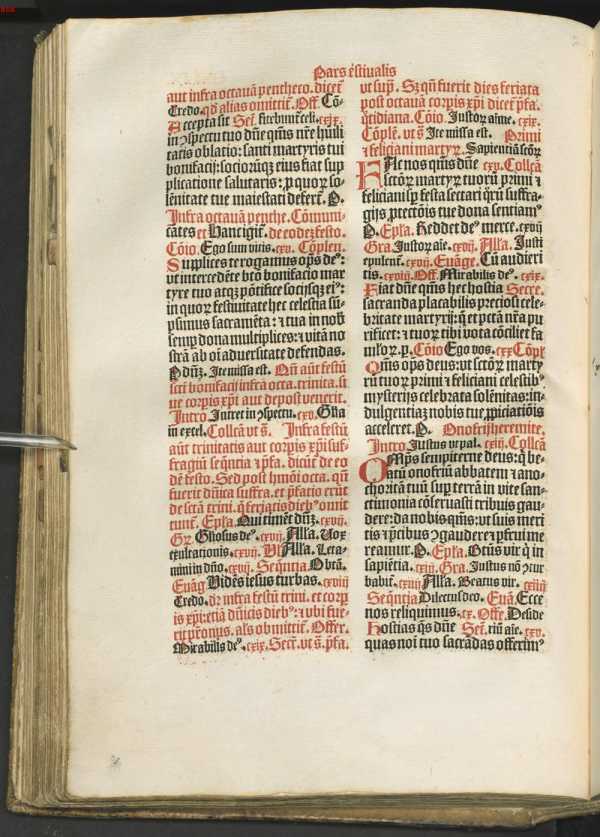 Pars estiualis
aut infra octauā penthecō. dicet̄
Credo. qd̄ alias omittit̄. Off. Cō-
Accepta sit Sec̄. sitebunt̄ celi. cxix.
in ꝯspectu tuo dn̄e qs̄ nr̄e hūili
tatis oblatio: sancti martyris tui
bonifacij: socioruqꝫ eius fiat sup
plicatione salutaris: ꝓ quoꝝ so-
lēnitate tue maiestati defert̄. P.
Infra octauā penthe. Cōmuni-
cātes et Hanc igit̄. de eodē festo.
Cōio. Ego sum vitis. cxv. Cōplen.
Supplices te rogamus ops̄ deꝰ:
vt intercedēte bt̄o bonifacio mar
tyre tuo atqꝫ pōtifice socijsqꝫ eiꝰ:
in quoꝝ festiuitate hec celestia sū-
psimus sacramēta: ⁊ tua in nob̄
semꝑ dona multiplices: ⁊ vitā no
strā ab oī aduersitate defendas.
P dn̄ꝫ. Ite missa est. Qn̄ aūt festū
sc̄ti bonifacij infra octa. trinita. si
ue corpis xp̄i aut depost venerit.
Intro. Intret in ꝯspectu. cxv. Gl̄ia
in excel. Collcā vt s̄. Infra festū
aūt trinitatis aut corpis xp̄i suf-
fragiū seqn̄tia ⁊ p̄fa. dicūt̄ de eo
dē festo. Sed post hm̄oi octa. qn̄
fuerit dn̄ica suffra. et p̄fatio erūt
de sctā trini. qꝫ feriatis diebꝰ omit
tunt̄. Epl̄a. Qui timēt dn̄ꝫ. cxvij.
Gr̄. Gloriosus deꝰ. cxvij. Alla. Vox
exultationis. cxvij. Vl̄ Alla. Leta-
mini in dn̄o. cxvij. Seqn̄tia. O btā.
Euāg Vidēs iesus turbas. cxviij
Credo. dr̄ infra festū trini. et corp
is xp̄i: etiā dn̄icis diebꝰ: ⁊ vbi fue-
rit pr̄onus. al̄s omittit̄. Offer.
Mirabilis deꝰ. cxix. Secr̄. vt s̄. p̄fa.
vt sup̄. Sꝫ qn̄ fuerit dies feriata
post octauā corpis xp̄i dicet̄ p̄fa.
qtidiana. Cōio. Iustoꝝ aīme. cxix.
Cōplē. vt s̄ Ite missa est. Primi
⁊ feliciani martyꝝ. Sapientiā sctōꝝ
FAc nos qs̄ dn̄e cxv. Collcā
sctōꝝ martyꝝ tuoꝝ primi ⁊
feliciani sꝑ festa sectari qꝝ suffra-
gijs ꝓtectōis tue dona sentiamꝰ
P. Epl̄a. Reddet deꝰ merce. cxvij
Gra. Iustoꝝ aīe. cxvij. Alla. Iusti
epulent̄. cxvij. Euāge. Cū audieri
tis. cxvij. Off. Mirabilis deꝰ. cxix.
Fiat dn̄e qs̄ hec hostia Secre.
sacranda placabilis preciosi cele-
britate martyrij: q̄ et pctā nr̄a pu
rificet: ⁊ tuoꝝ tibi vota cōciliet fa
mloꝝ. p. Cōio Ego vos. cxx Cōpl̄
Qs̄ ops̄ deus: vt sctōꝝ marty
rū tuoꝝ primi ⁊ feliciani celestibꝰ
mysterijs celebrata solēnitas: in-
dulgentiaꝫ nobis tue ꝓpiciatiōis
acceleret. P. Onofrij heremite.
Intro Iustus vt pal. cxiij. Collcā
OMp̄s sempiterne deus: q̄ be-
atū onofriū abbatem ⁊ ano-
choritā tuū sup̄ terrā in vite san-
ctimonia cōseruasti tribuis gau-
dere: da nobis qs̄: vt suis meri
tis ⁊ p̄cibus ꝯgaudere ⁊ ꝑfrui me
reamur. P. Epl̄a. Bt̄us vir q̄ in
sapiētia. cxiij. Gra. Iustus nō ꝯtur
babit̄. cxiij Alla. Beatus vir. cxiij
Seqn̄tia Dilectus deo. Euā. Ecce
nos reliquimus. cx. Offe. Deside
Hostias qs̄ dn̄e Sec̄. riū aīe. cxv.
quas noī tuo sacrādas offerimꝰ